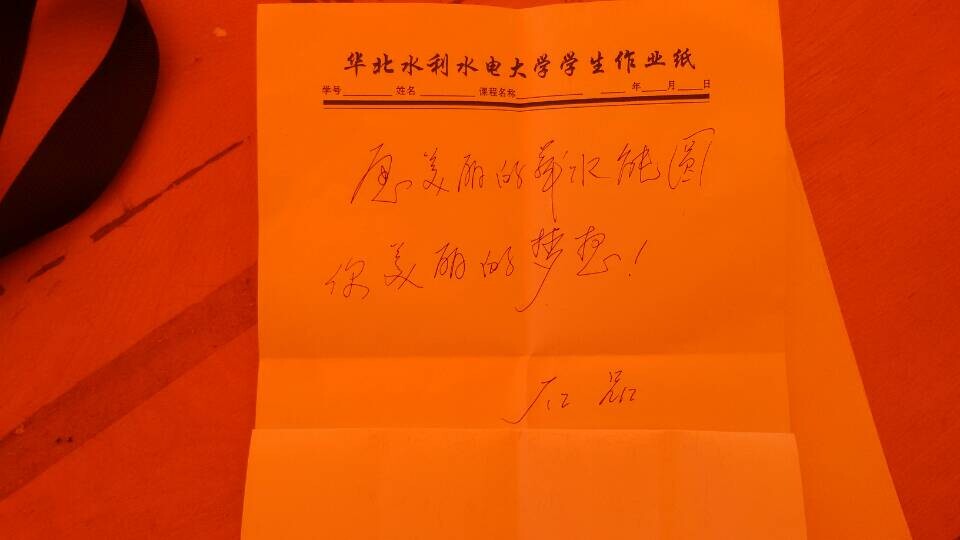 华北水利水电大学学生作业纸
学号 姓名 课程名称 年 月 日
愿美丽的华水能圆
你美丽的梦想!
石品